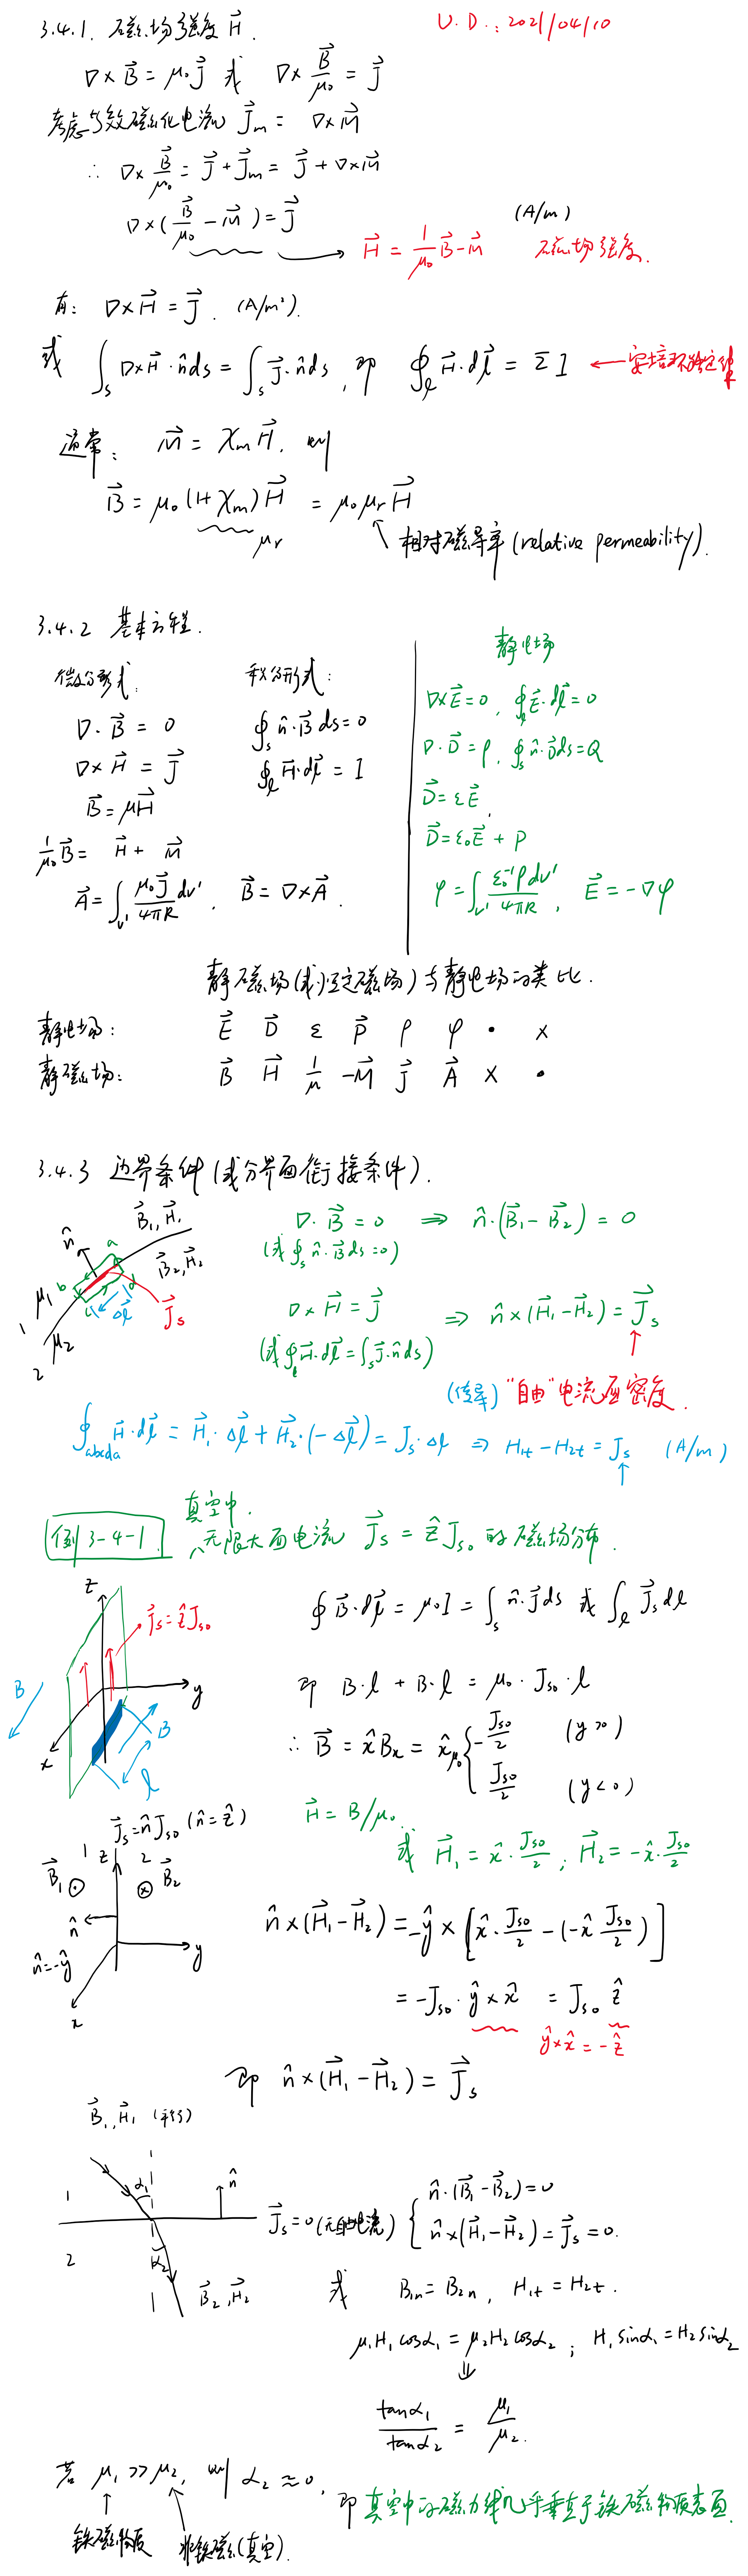 3.4.1. 磁场强度 H⃗.
U.D.: 2021/04/10
∇×B⃗ = μ₀J⃗ 或 ∇×B⃗/μ₀ = J⃗
考虑等效磁化电流 J⃗m = ∇×M⃗
∴ ∇×B⃗/μ₀ = J⃗+J⃗m = J⃗+∇×M⃗
∇×(B⃗/μ₀ - M⃗) = J⃗
(A/m)
→ H⃗ = 1/μ₀ B⃗ - M⃗ 磁场强度.
有: ∇×H⃗ = J⃗. (A/m²).
或 ∫s ∇×H⃗·n̂ds = ∫s J⃗·n̂ds, 即 ∮l H⃗·dl⃗ = ΣI ← 安培环路定律
通常: M⃗ = χm H⃗, 则
B⃗ = μ₀(1+χm)H⃗ = μ₀μrH⃗
μr
相对磁导率 (relative permeability).
3.4.2 基本方程.
静电场
微分形式: 积分形式:
∇·B⃗ = 0 ∮s n̂·B⃗ds=0
∇×H⃗ = J⃗ ∮l H⃗·dl⃗ = I
B⃗ = μH⃗
1/μ₀ B⃗ = H⃗ + M⃗
A⃗ = ∫v' μ₀J⃗dv'/4πR, B⃗ = ∇×A⃗.
∇×E⃗=0, ∮l E⃗·dl⃗=0
∇·D⃗=ρ, ∮s n̂·D⃗ds=Q
D⃗=εE⃗,
D⃗=ε₀E⃗ + P
φ=∫v' ε₀⁻¹ρdv'/4πR, E⃗=-∇φ
静磁场(或恒定磁场)与静电场的类比.
静电场: E⃗ D⃗ ε P⃗ ρ φ · ×
静磁场: B⃗ H⃗ 1/μ -M⃗ J⃗ A⃗ × ·
3.4.3 边界条件(或分界面衔接条件).
n̂ B⃗₁,H⃗₁
B⃗₂,H⃗₂
a b c d
μ₁ Δl⃗ J⃗s
1 μ₂
2
∇·B⃗=0 ⇒ n̂·(B⃗₁-B⃗₂)=0
(或∮s n̂·B⃗ds=0)
∇×H⃗=J⃗ ⇒ n̂×(H⃗₁-H⃗₂)=J⃗s
(或∮l H⃗·dl⃗=∫s J⃗·n̂ds)
(传导)"自由"电流面密度.
∮abcda H⃗·dl⃗ = H⃗₁·Δl⃗+H⃗₂·(-Δl⃗)=Js·Δl ⇒ H1t-H2t=Js (A/m)
真空中.
例3-4-1. ^无限大面电流 J⃗s = ẑJso 的磁场分布.
z J⃗s=ẑJso
B y x B l
∮B⃗·dl⃗ = μ₀I = ∫s n̂·J⃗ds 或 ∫l J⃗sdl
即 B·l + B·l = μ₀·Jso·l
∴ B⃗ = x̂Bx = x̂μ₀{ -Jso/2 (y>0)
Jso/2 (y<0)
H⃗=B/μ₀.
或 H⃗₁=x̂·Jso/2, H⃗₂=-x̂·Jso/2
J⃗s=n̂Jso (n̂=ẑ)
1 z 2
B⃗₁⊙ ⊗B⃗₂
n̂
n̂=-ŷ y
x
n̂×(H⃗₁-H⃗₂)=-ŷ×[x̂·Jso/2-(-x̂Jso/2)]
= -Jso·ŷ×x̂ = Jso ẑ
ŷ×x̂=-ẑ
即 n̂×(H⃗₁-H⃗₂)=J⃗s
B⃗₁,H⃗₁ (平行)
α₁ n̂
1
2
α₂
B⃗₂,H⃗₂
J⃗s=0(无自由电流) { n̂·(B⃗₁-B⃗₂)=0
n̂×(H⃗₁-H⃗₂)=J⃗s=0.
或 B1n=B2n, H1t=H2t.
μ₁H₁cosα₁=μ₂H₂cosα₂; H₁sinα₁=H₂sinα₂
⇓
tanα₁/tanα₂ = μ₁/μ₂.
若 μ₁>>μ₂, 则 α₂≈0, 即真空中的磁力线几乎垂直于铁磁物质表面.
铁磁物质 非铁磁(真空).